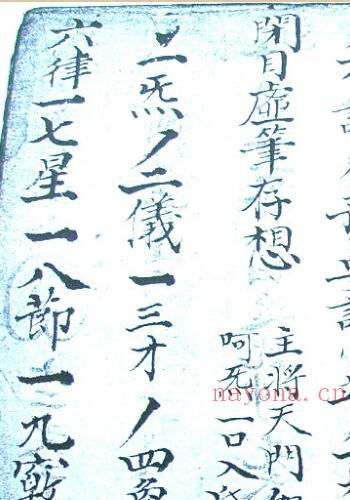 閉目虛筆存想
主將天門
呵炁一口入
丿一炁丿二儀一三才丿四象
六律一七星一八節一九竅
nayona.cn